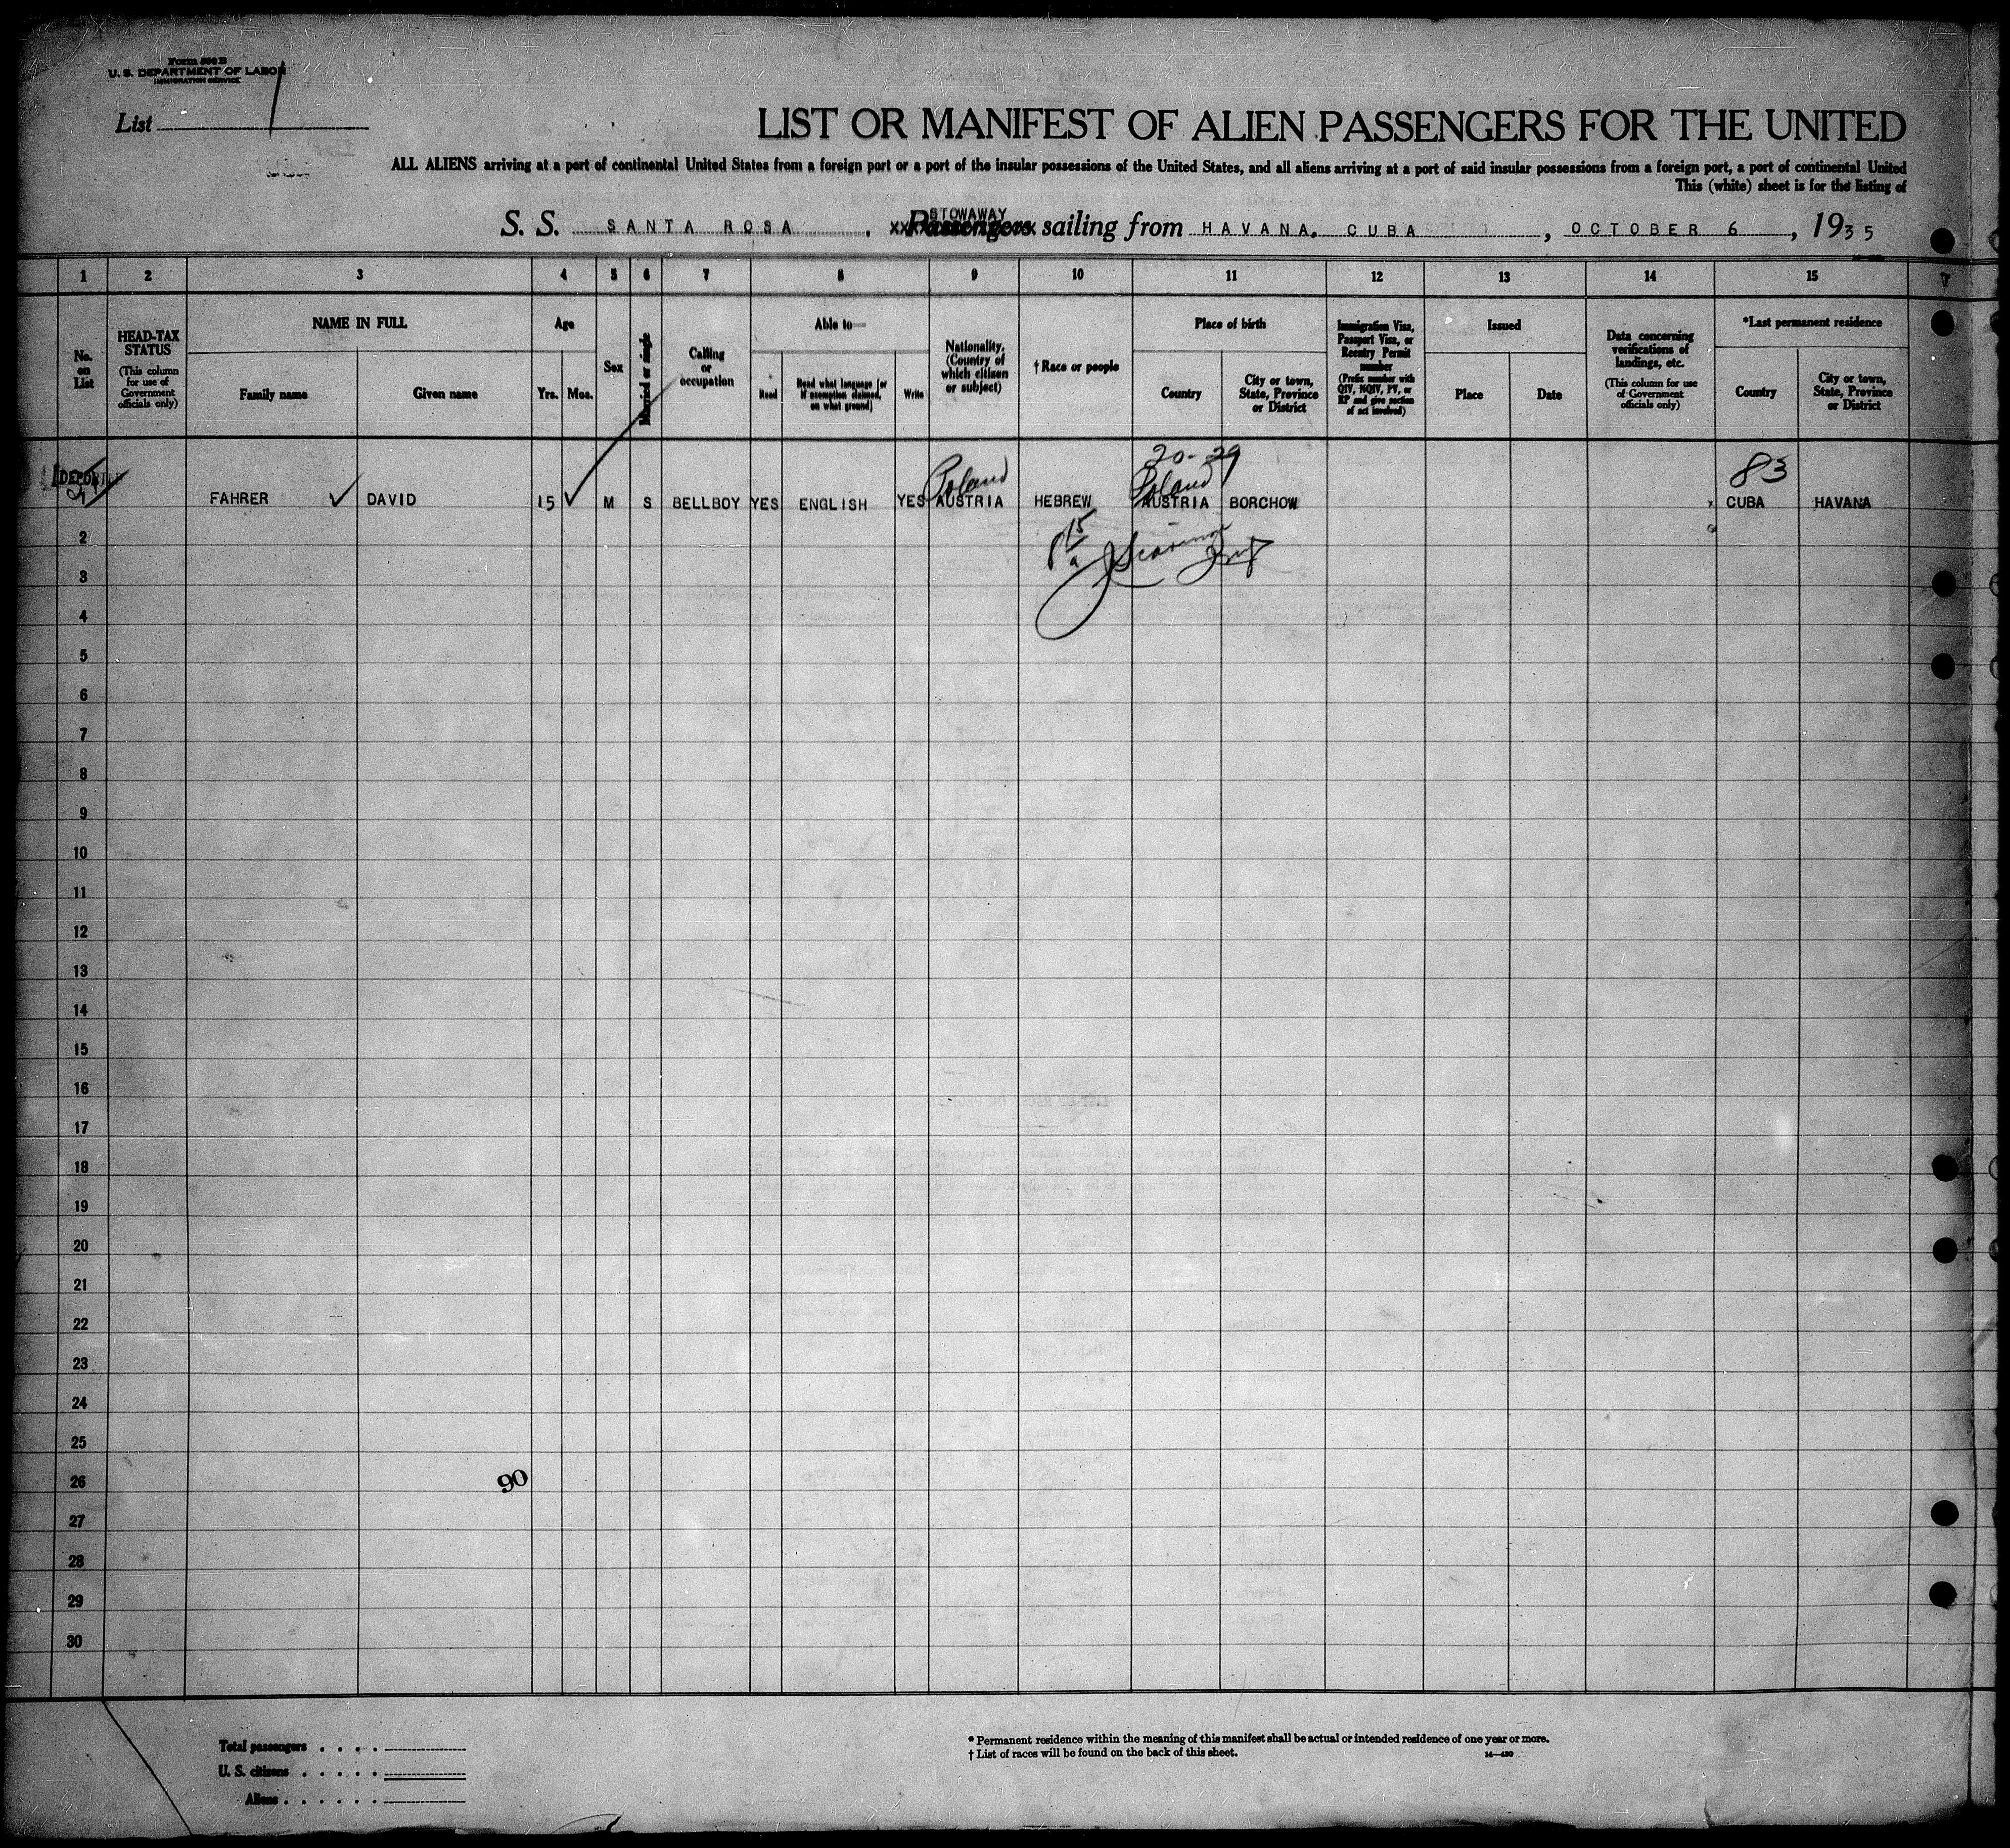 Form 500 B
U. S. DEPARTMENT OF LABOR
IMMIGRATION SERVICE
List 1
LIST OR MANIFEST OF ALIEN PASSENGERS FOR THE UNITED
ALL ALIENS arriving at a port of continental United States from a foreign port or a port of the insular possessions of the United States, and all aliens arriving at a port of said insular possessions from a foreign port, a port of continental United
This (white) sheet is for the listing of
STOWAWAY
S. S. SANTA ROSA , Passengers sailing from HAVANA, CUBA , OCTOBER 6 , 1935
1 2 3 4 5 6 7 8 9 10 11 12 13 14 15
No. on List
HEAD-TAX STATUS
(This column for use of Government officials only)
NAME IN FULL
Family name
Given name
Age
Yrs. Mos.
Sex
Married or single
Calling or occupation
Able to—
Read
Read what language [or if exemption claimed, on what ground]
Write
Nationality. (Country of which citizen or subject)
† Race or people
Place of birth
Country
City or town, State, Province or District
Immigration Visa, Passport Visa, or Reentry Permit number
(Prefix number with QIV, NQIV, PV, or RP and give section of act involved)
Issued
Place
Date
Data concerning verifications of landings, etc.
(This column for use of Government officials only)
*Last permanent residence
Country
City or town, State, Province or District
20-29
DEPORTED Poland Poland 83
FAHRER DAVID 15 M S BELLBOY YES ENGLISH YES AUSTRIA HEBREW AUSTRIA BORCHOW CUBA HAVANA
15
2
3
4
5
6
7
8
9
10
11
12
13
14
15
16
17
18
19
20
21
22
23
24
25
26 90
27
28
29
30
Total passengers . . . .
U. S. citizens . . . . .
Aliens . . . . . .
* Permanent residence within the meaning of this manifest shall be actual or intended residence of one year or more.
† List of races will be found on the back of this sheet. 14—430